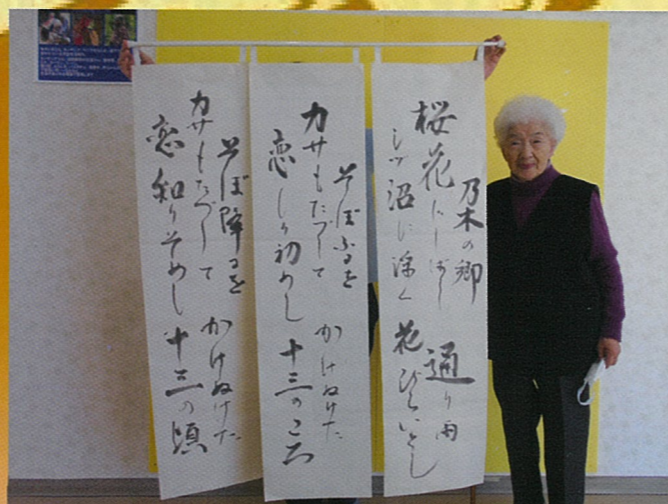 乃木の郷
桜花にしばし 通り雨
沼に 花びらいとし
そぼふるを
カサもたずして かけぬけた
恋しり初めし 十三のころ
そぼ降るを
カサもたずして かけぬけた
恋知りそめし 十三の頃